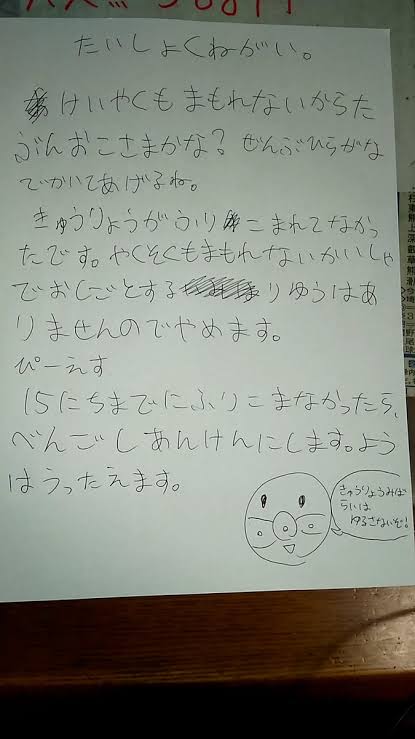 たいしょくねがい。
けいやくもまもれないからた
ぶんおこさまかな?ぜんぶひらがな
でかいてあげるね。
きゅうりょうがふりこまれてなかっ
たです。やくそくもまもれないかいしゃ
でおしごとするりゆうはあ
りませんのでやめます。
ぴーえす
15にちまでにふりこまなかったら、
べんごしあんけんにします。よう
はうったえます。
きゅうりょうみば
らいは
ゆるさないぞ!